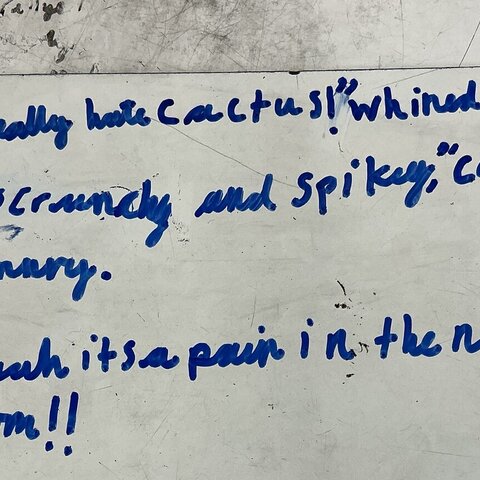 eally hate cactus!" whined
scrunchy and spikey," c
nury.
uh its a pain in the n
om!!